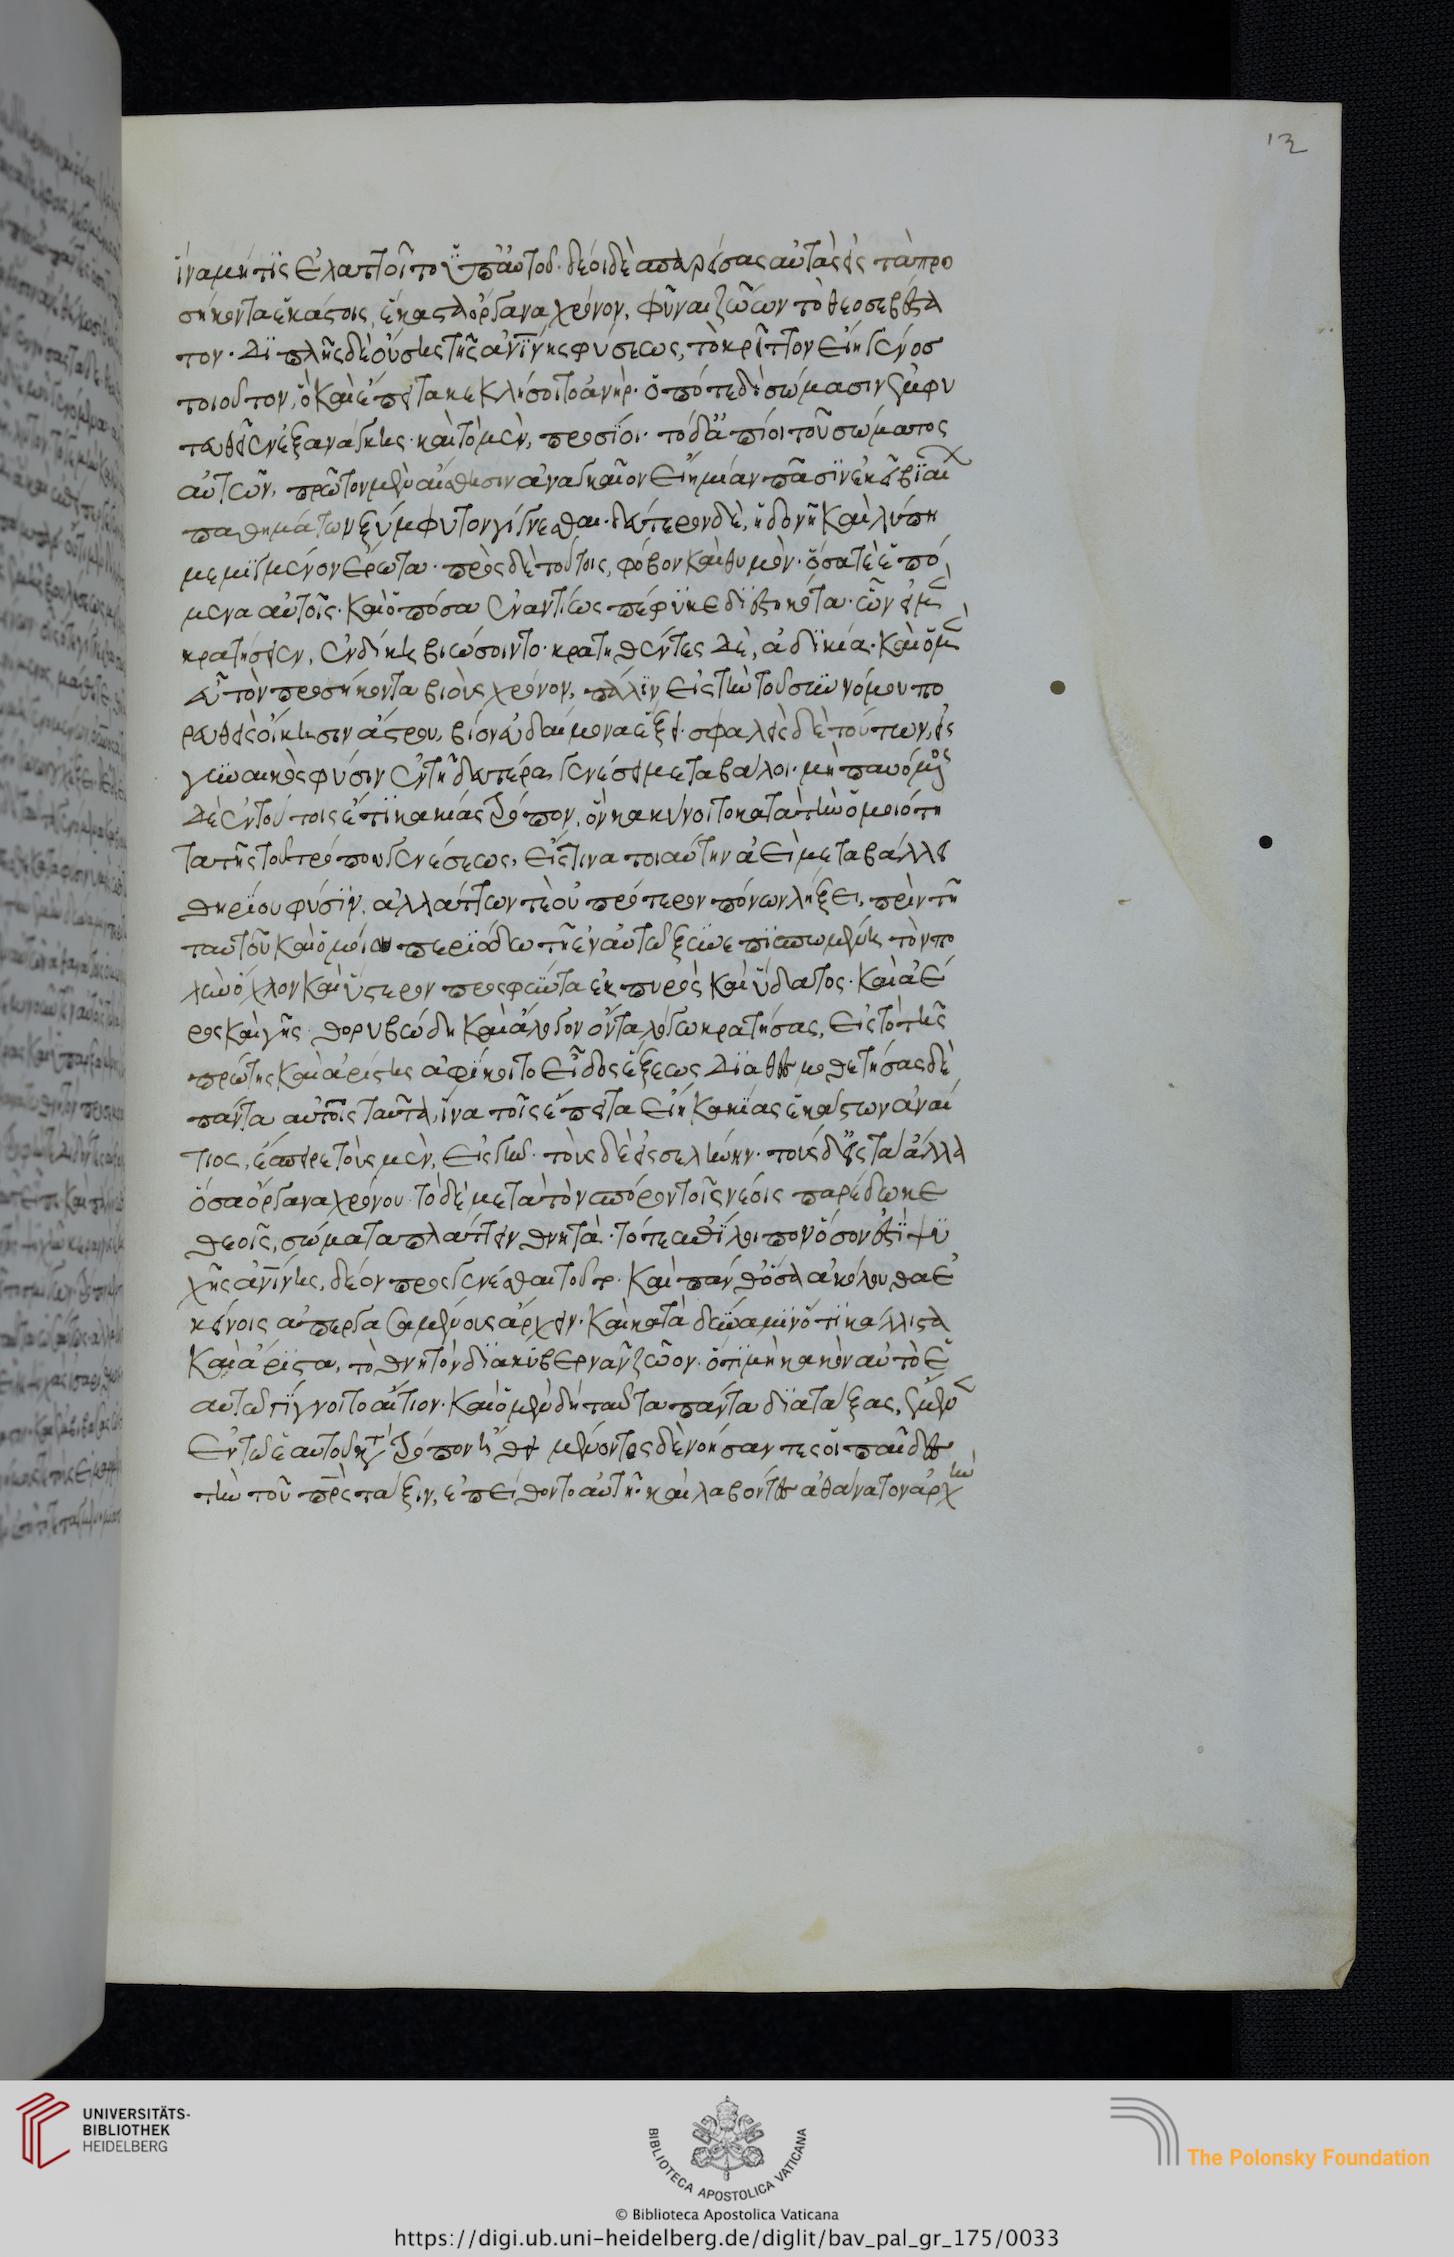 ἵνα μήτις ἐλαττοῖτο ὑπ' αὐτοῦ· δέοι δὲ σπαρείσας αὐτὰς εἰς τὰ προ
σήκοντα ἑκάστοις, ἕκαστα ὄργανα χρόνου, φῦναι ζώων τὸ θεοσεβέστα
τον· διπλῆς δὲ οὔσης τῆς ἀνίνης φύσεως, τὸ κρεῖττον εἴη γένος
τοιοῦτον, ὃ καὶ ἔπειτα κεκλήσοιτο ἀνήρ· ὁπότε δὴ σώμασιν ἐμφυ
τευθεῖεν ἐξ ἀνάγκης· καὶ τὸ μὲν, προσίοι· τὸ δ' ἀπίοι τοῦ σώματος
αὐτῶν, πρῶτον μὲν αἴσθησιν ἀναγκαῖον εἴη μίαν πᾶσιν ἐκ βιαίων
παθημάτων ξύμφυτον γίγνεσθαι· δεύτερον δὲ, ἡδονῆ καὶ λύπη
μεμιγμένον ἔρωτα· πρὸς δὲ τούτοις, φόβον καὶ θυμὸν· ὅσα τὲ ἑπό
μενα αὐτοῖς· καὶ ὁπόσα ἐναντίως πέφυκε διεστηκότα· ὧν εἰ μὲν
κρατήσειεν, ἐν δίκη βιώσοιντο· κρατηθέντες δὲ, ἀδικία· καὶ ὁ μὲν
εὖ τὸν προσήκοντα βιοὺς χρόνον, πάλιν εἰς τὴν τοῦ συννόμου πο
ρευθεὶς οἴκησιν ἄστρου, βίον εὐδαίμονα ἕξει· σφαλεὶς δὲ τούτων, εἰς
γυναικὸς φύσιν ἐν τῆ δευτέρα γενέσει μεταβάλοι· μὴ παυόμενος
δὲ ἐν τούτοις ἔτι κακίας τρόπον, ὃν κακύνοιτο κατὰ τὴν ὁμοιότη
τα τῆς τοῦ τρόπου γενέσεως, εἴς τινα τοιαύτην ἀεὶ μεταβάλλει
θηρίου φύσιν. ἀλλάττων τὲ οὐ πρότερον πόνων λήξει, πρὶν τῆ
ταυτοῦ καὶ ὁμοίου περιόδω τῆ ἐν αὐτῶ ξυνεπισπωμένης τὸν πο
λὺν ὄχλον καὶ ὕστερον προσφύντα ἐκ πυρὸς καὶ ὕδατος· καὶ ἀέ
ρος καὶ γῆς· θορυβώδη καὶ ἄλογον ὄντα λόγω κρατήσας, εἰς τὸ τῆς
πρώτης καὶ ἀρίστης ἀφίκοιτο εἶδος ἕξεως διαθεσμοθετήσας δὲ
πάντα αὐτοῖς ταῦτα, ἵνα τοῖς ἔπειτα εἴη κακίας ἑκάστων ἀναί
τιος, ἔσπειρε τοὺς μὲν, εἰς γῆν· τοὺς δὲ εἰς σελήνην· τοὺς δ' εἰς τἄλλα
ὅσα ὄργανα χρόνου· τὸ δὲ μετὰ τὸν σπόρον τοῖς νέοις παρέδωκε
θεοῖς, σώματα πλάττειν θνητὰ· τό τε ἐπίλοιπον ὅσον ἔτι ψυ
χῆς ἀνίνης, δέον προσγενέσθαι τοῦτο· καὶ πάνθ' ὅσα ἀκόλουθα ἐ
κείνοις ἀπεργασαμένους ἄρχειν· καὶ κατὰ δύναμιν ὅτι κάλλιστα
καὶ ἄριστα, τὸ θνητὸν διακυβερνᾶν ζῶον· ὅτι μὴ κακὸν αὐτὸ ἑ
αυτῶ γίγνοιτο αἴτιον· καὶ ὁ μὲν δὴ ταῦτα πάντα διατάξας, ἔμεν
ἐν τῶ ἑαυτοῦ κατὰ τρόπον ἤθει μένοντος δὲ νοήσαντες οἱ παῖδες
τὴν τοῦ πρς τάξιν, ἐπείθοντο αὐτῆ· καὶ λαβόντες ἀθάνατον ἀρχὴν
12
UNIVERSITÄTS-
BIBLIOTHEK
HEIDELBERG
BIBLIOTECA APOSTOLICA VATICANA
© Biblioteca Apostolica Vaticana
The Polonsky Foundation
https://digi.ub.uni-heidelberg.de/diglit/bav_pal_gr_175/0033